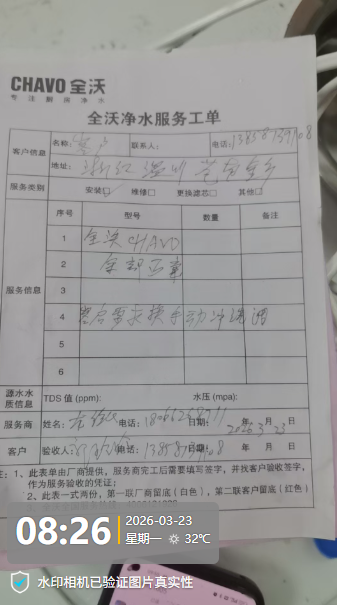 CHAVO 全沃
专注厨房净水
全沃净水服务工单
客户信息 名称: 客户 联系人: 电话:
地址: 浙江 温州
服务类别 安装☑ 维修□ 更换滤芯□ 其他□
服务信息 序号 型号 数量 备注
1 全沃 CHAVO
2 全部正常
3
4 售后要求换手动冲洗阀
5
6
源水水质信息 TDS 值 (ppm): 水压 (mpa):
服务商 姓名: 电话: 日期: 2026年3月23日
客户 验收人: 电话: 日期: 年 月 日
注: 1、此表单由厂商提供，服务商完工后需要填写签字，并找客户验收签字，
作为服务验收的凭证;
2、此表一式两份，第一联厂商留底 (白色)，第二联客户留底 (红色)
08:26 2026-03-23
星期一 32℃
水印相机已验证图片真实性